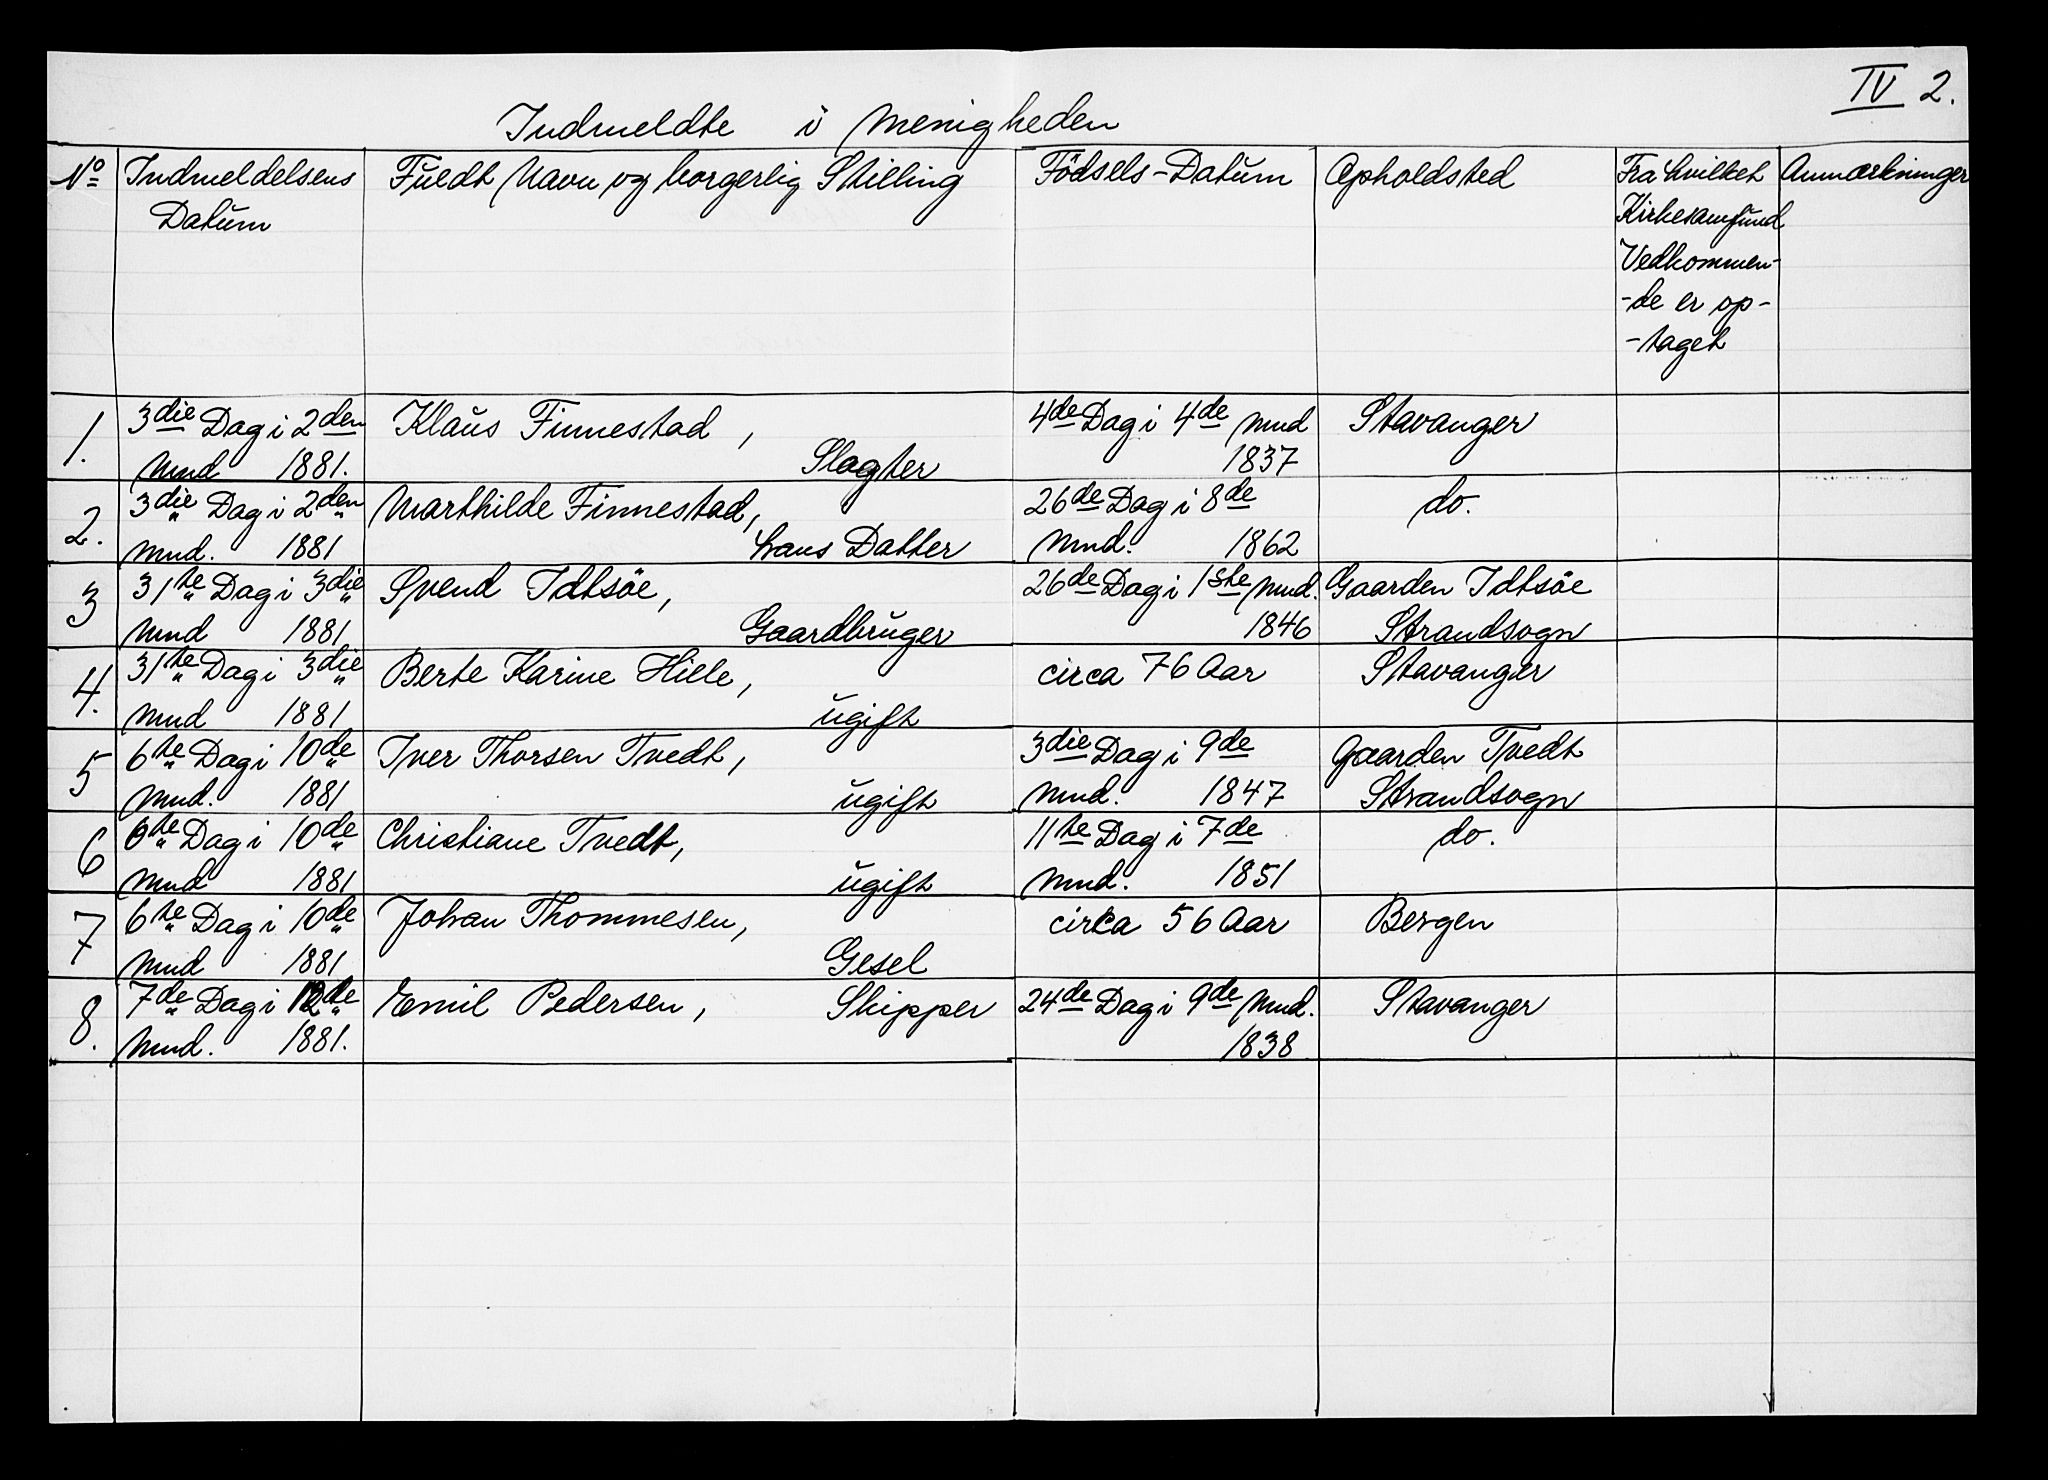 IV 2.
Indmeldte i Menigheden
No Indmeldelsens Datum
Fuldt Navn og borgerlig Stilling
Födsels-Datum
Opholdsted
Fra hvilket
Kirkesamfund
Vedkommen-
-de er op-
-taget
Anmærkninger
1. 3die Dag i 2den Klaus Finnestad, 4de Dag i 4de Mnd Stavanger
Mnd 1881. Slagter 1837
2. 3die Dag i 2den Marthilde Finnestad, 26de Dag i 8de do.
Mnd. 1881 hans Datter Mnd. 1862
3 31te Dag i 3die Svend Idtsöe, 26de Dag i 1ste Mnd. Gaarden Idtsöe
Mnd 1881 Gaardbruger 1846 Strandsogn
4. 31te Dag i 3die Berte Karine Hille, circa 76 Aar Stavanger
Mnd 1881 ugift
5 6te Dag i 10de Iver Thorsen Tvedt, 3die Dag i 9de Gaarden Tvedt
Mnd. 1881 ugift Mnd. 1847 Strandsogn
6 6te Dag i 10de Christiane Tvedt, 11te Dag i 7de do.
Mnd 1881 ugift Mnd. 1851
7 6te Dag i 10de Johan Thommesen, circa 56 Aar Bergen
Mnd 1881 Gesel
8. 7de Dag i 12de Emil Pedersen, Skipper 24de Dag i 9de Mnd. Stavanger
Mnd. 1881. 1838